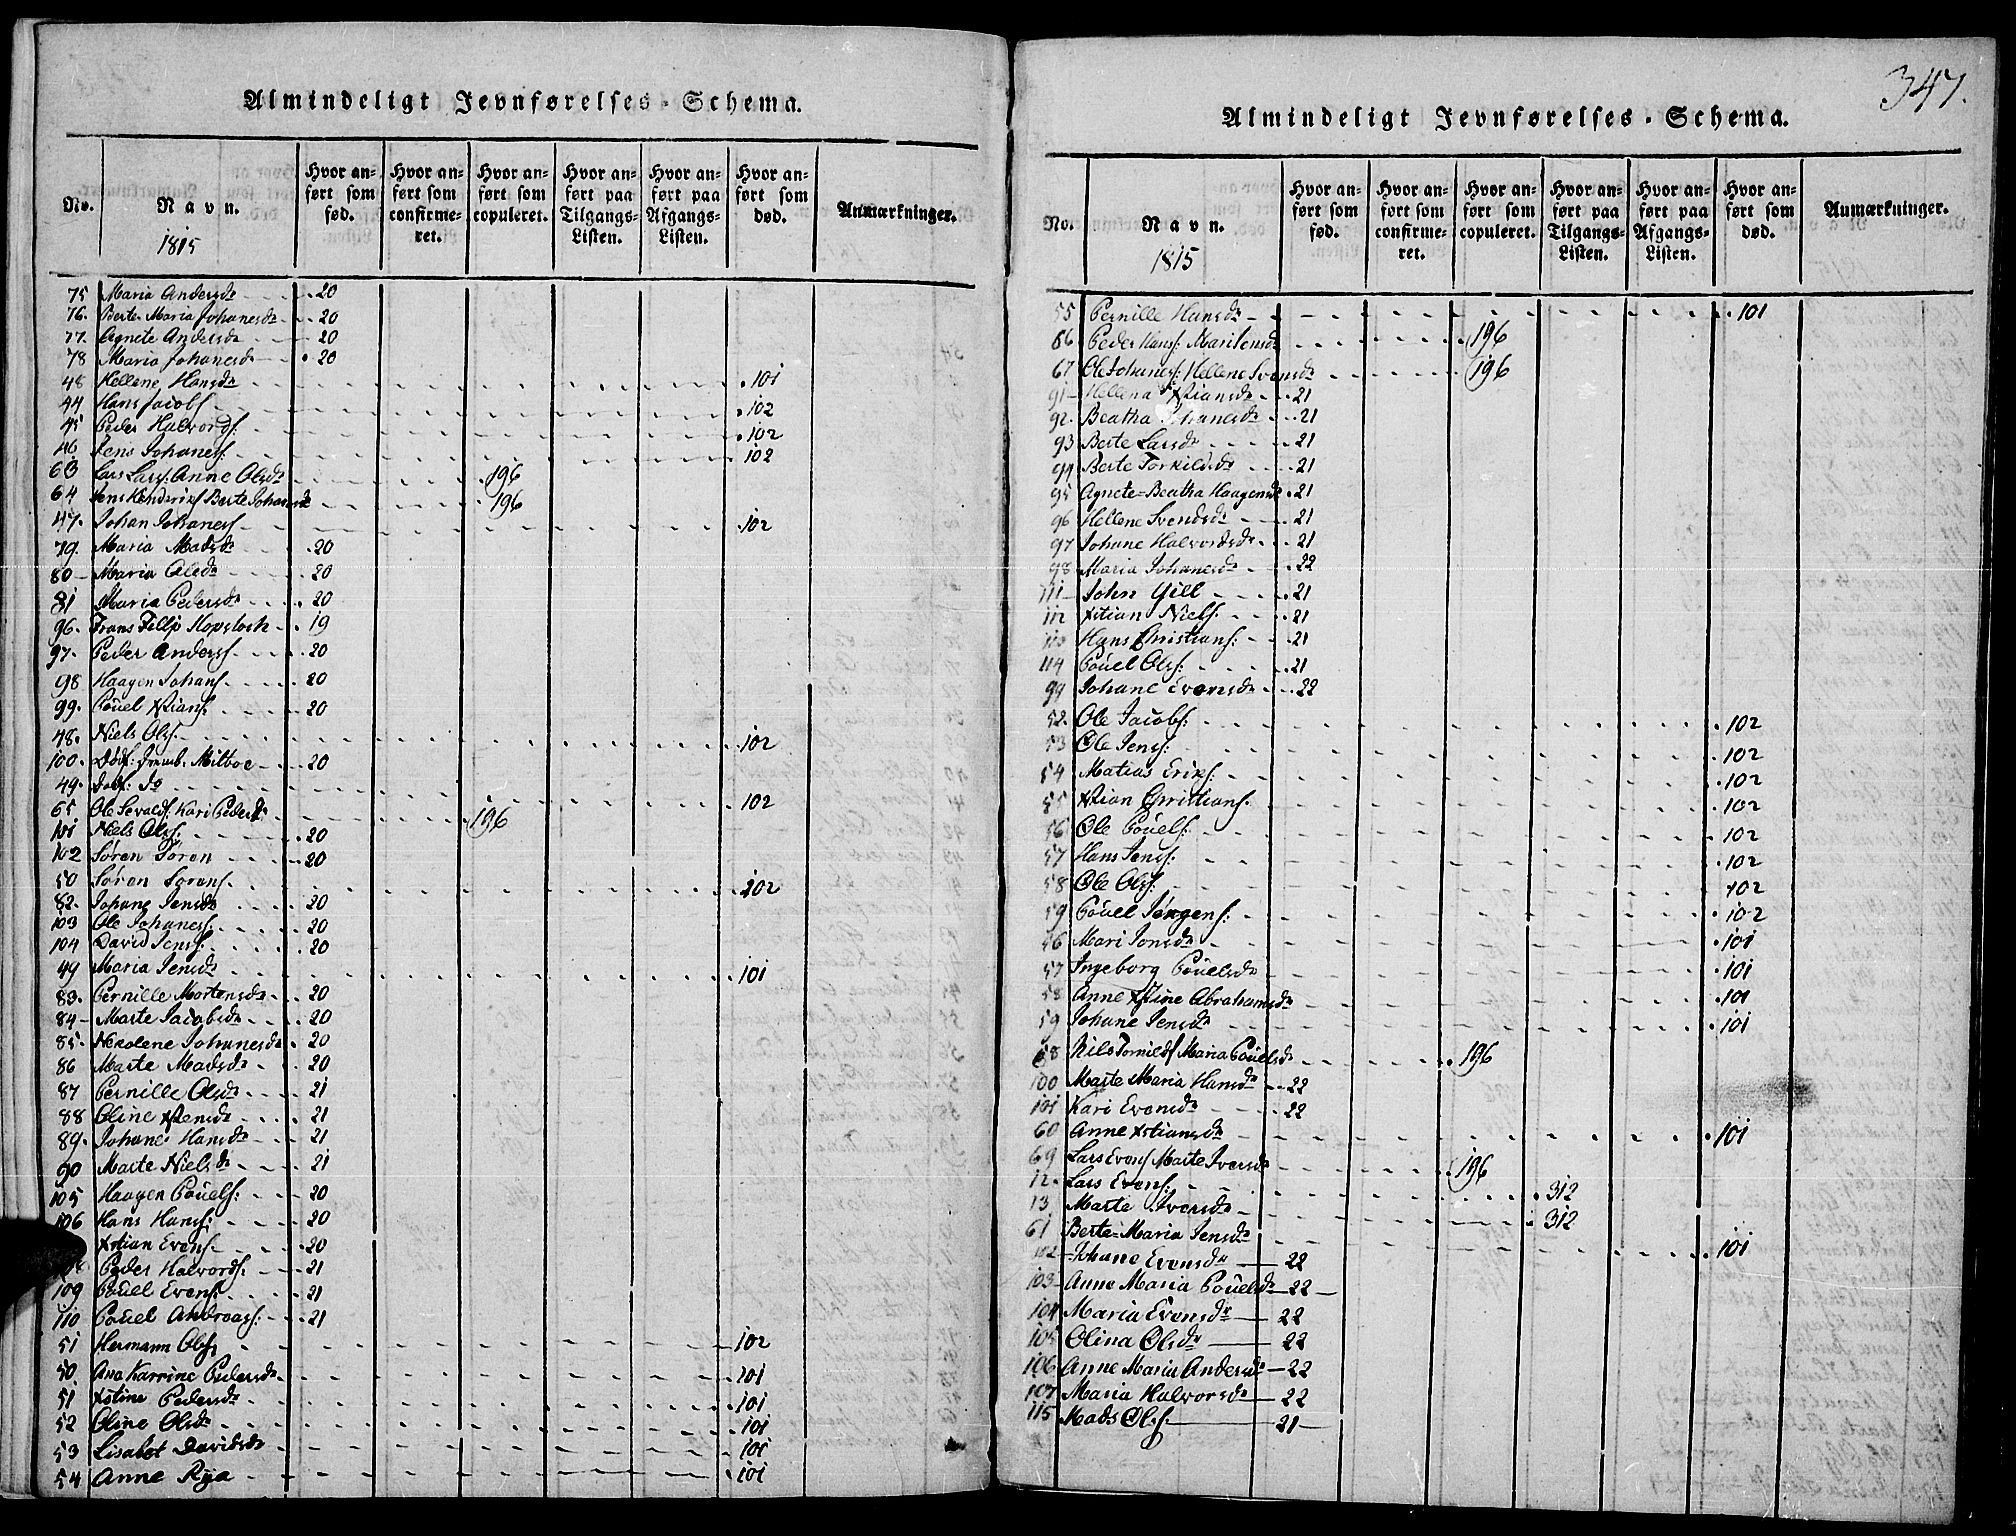 Almindeligt Jevnførelses-Schema.
No. Navn. 1815 Hvor anført som fød. Hvor anført som confirmeret. Hvor anført som copuleret. Hvor anført paa Tilgangs-Listen. Hvor anført paa Afgangs-Listen. Hvor anført som død. Anmærkninger.
75 Maria Andersdr 20
76. Berte Maria Johanesdr 20
77. Agnete Andersdr 20
78 Maria Johanesdr 20
48 Hellene Hansdr 101
44 Hans Jacobs. 102
45 Peder Halvords. 102
46 Jens Johanes. 102
63 Lars Lars. Anne Olsdr 196
64 Jens Hendriks. Berte Johanesdr 196
47. Johan Johanes. 102
79. Maria Madsdr 20
80 Maria Olsdr 20
81 Maria Pedersdr 20
96. Frans Fillip Hopstock 19
97. Peder Anders. 20
98 Haagen Johans. 20
99. Pouel Xtians. 20
48. Niels Ols. 102
100. Dødf: Milboe 20
49. Dødf: Do 102
65. Ole Sevalds. Kari Pedersdr 196
101 Niels Ols. 20
102 Søren Søren 20
50 Søren Sørens. 102
82. Johane Jensdr 20
103 Ole Johanes. 20
104 David Jens. 20
49 Maria Jensdr 101
83. Pernille Mortensdr 20
84 Marte Jacobsdr 20
85. Nicolene Johanesdr 20
86 Marte Madsdr 20
87 Pernille Olsdr 21
88 Oline Xtensdr 21
89. Johane Hansdr 21
90 Marte Nielsdr 21
105 Haagen Pouels: 20
106 Hans Hans: 20
Xstian Evens. 20
Peder Halvords. 21
109 Pouel Evens. 21
110 Pouel Andreas: 21
51 Hermann Ols. 102
50. Ana Karrine Pedersdr 101
51 Xstine Pedersdr 101
52 Oline Olsdr 101
53 Lisabet Davidsdr 101
54 Anne Rya 101
347.
Almindeligt Jevnførelses-Schema.
No. Navn. 1815 Hvor anført som fød. Hvor anført som confirmeret. Hvor anført som copuleret. Hvor anført paa Tilgangs-Listen. Hvor anført paa Afgangs-Listen. Hvor anført som død. Anmærkninger.
55 Pernille Hansdr 101
66 Peder Hans: Mari Jensdr 196
67 Ole Johanes: Hellene Svensdr 196
91 Hellena Xtiansdr 21
92. Beatha Johanesdr 21
93 Berte Larsdr 21
94 Berte Torkildsdr 21
95 Agnete-Beatha Haagensdr 21
96 Hellene Svendsdr 21
97 Johane Halvordsdr 21
98 Maria Johanesdr 22
111 John Gill 21
112 Xstian Niels: 21
113 Hans Christians: 21
114 Pouel Ols: 21
99 Johane Evensdr 22
52. Ole Jacobs: 102
53 Ole Jens: 102
54 Matias Eriks: 102
55 Xstian Christians. 102
56 Ole Pouels: 102
57 Hans Jens: 102
58 Ole Ols: 102
59 Pouel Jørgens: 102
56 Mari Jonsdr 101
57 Ingeborg Pouelsdr 101
58 Anne Xstine Abrahamsdr 101
59 Johane Jensdr 101
68 Nils Torkilds. Maria Pouelsdr 196
100 Marte Maria Hansdr 22
101 Kari Evensdr 22
60 Anne Xstiansdr 101
69 Lars Evens. Marte Iversdr 196
12. Lars Evens: 312
13 Marte Iversdr 312
61 Berte-Maria Jensdr 101
102 Johane Evensdr 22
103 Anne Maria Pouelsdr 22
104 Maria Evensdr 22
105 Olina Olsdr 22
106 Anne Maria Andersdr 22
107 Maria Halvorsdr 22
115 Mads Ols. 21